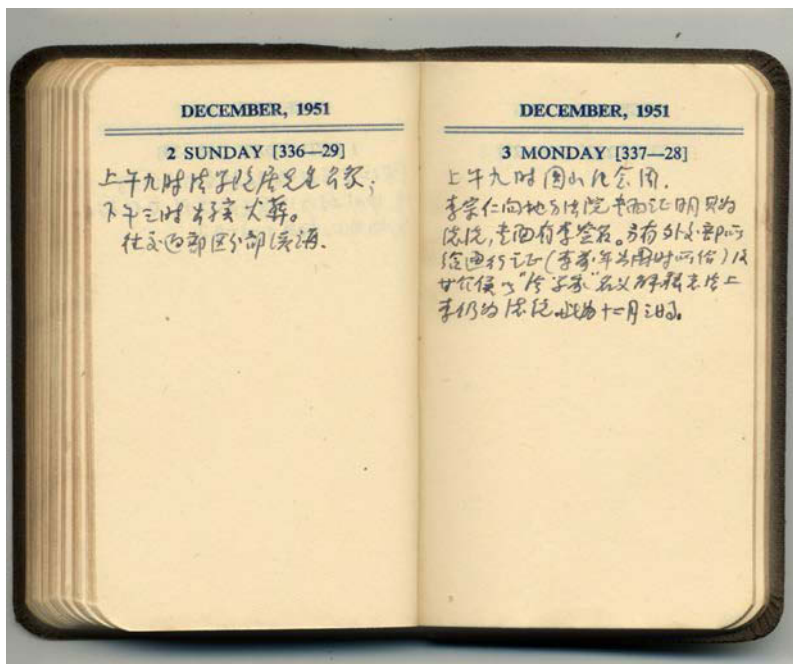 DECEMBER, 1951
2 SUNDAY [336—29]
上午九时法学院居先生公祭；
下午三时 火葬。
社交西部区分部
DECEMBER, 1951
3 MONDAY [337—28]
上午九时圆山纪念周．
李宗仁向地方法院书面证明其为
总统，书面有李签名。另有外交部所
给通行证(李前年出国时所给)及
甘介侯以“法学家”名义解释在法上
李仍为总统。此为十二月三日。